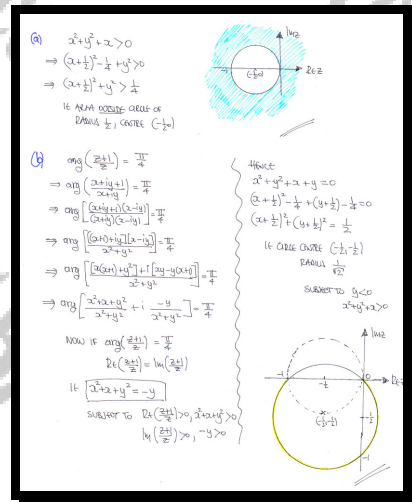 (a) x²+y²+x>0
⇒ (x+½)²-¼+y²>0
⇒ (x+½)²+y²>¼
IE AREA OUTSIDE CIRCLE OF
RADIUS ½, CENTRE (-½,0)
Imz
-1
(-½,0)
Rez
(b) arg(z+1/z) = π/4
⇒ arg(x+iy+1/x+iy) = π/4
⇒ arg[(x+iy+1)(x-iy)/(x+iy)(x-iy)] = π/4
⇒ arg[[(x+1)+iy][x-iy]/x²+y²] = π/4
⇒ arg[[x(x+1)+y²]+i[xy-y(x+1)]/x²+y²] = π/4
⇒ arg[x²+x+y²/x²+y² + i -y/x²+y²] = π/4
NOW IF arg(z+1/z) = π/4
Re(z+1/z) = Im(z+1/z)
IE x²+x+y² = -y
SUBJECT TO Re(z+1/z)>0, x²+x+y²>0
Im(z+1/z)>0, -y>0
HENCE
x²+y²+x+y=0
(x+½)²-¼+(y+½)²-¼=0
(x+½)²+(y+½)² = ½
IE CIRCLE CENTRE (-½,-½)
RADIUS 1/√2
SUBJECT TO y<0
x²+y²+x>0
Imz
-1
-½
0
Rez
(-½,-½)
-½
-1